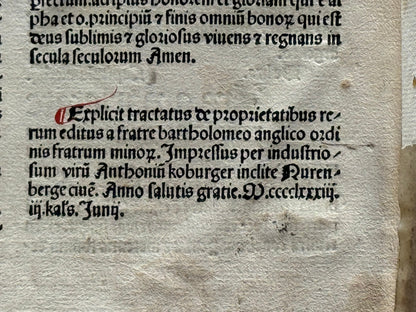 pha et o. principiū & finis omniū honoꝝ qui est
deus sublimis & gloriosus viuens & regnans in
secula seculorum Amen.
Explicit tractatus de proprietatibus re⸗
rum editus a fratre bartholomeo anglico ordi
nis fratrum minoꝝ. Impressus per industrio⸗
sum virū Anthoniū koburger inclite Nuren⸗
berge ciuē. Anno salutis gratie. M.cccclxxxiij.
iij. kal's. Junij.